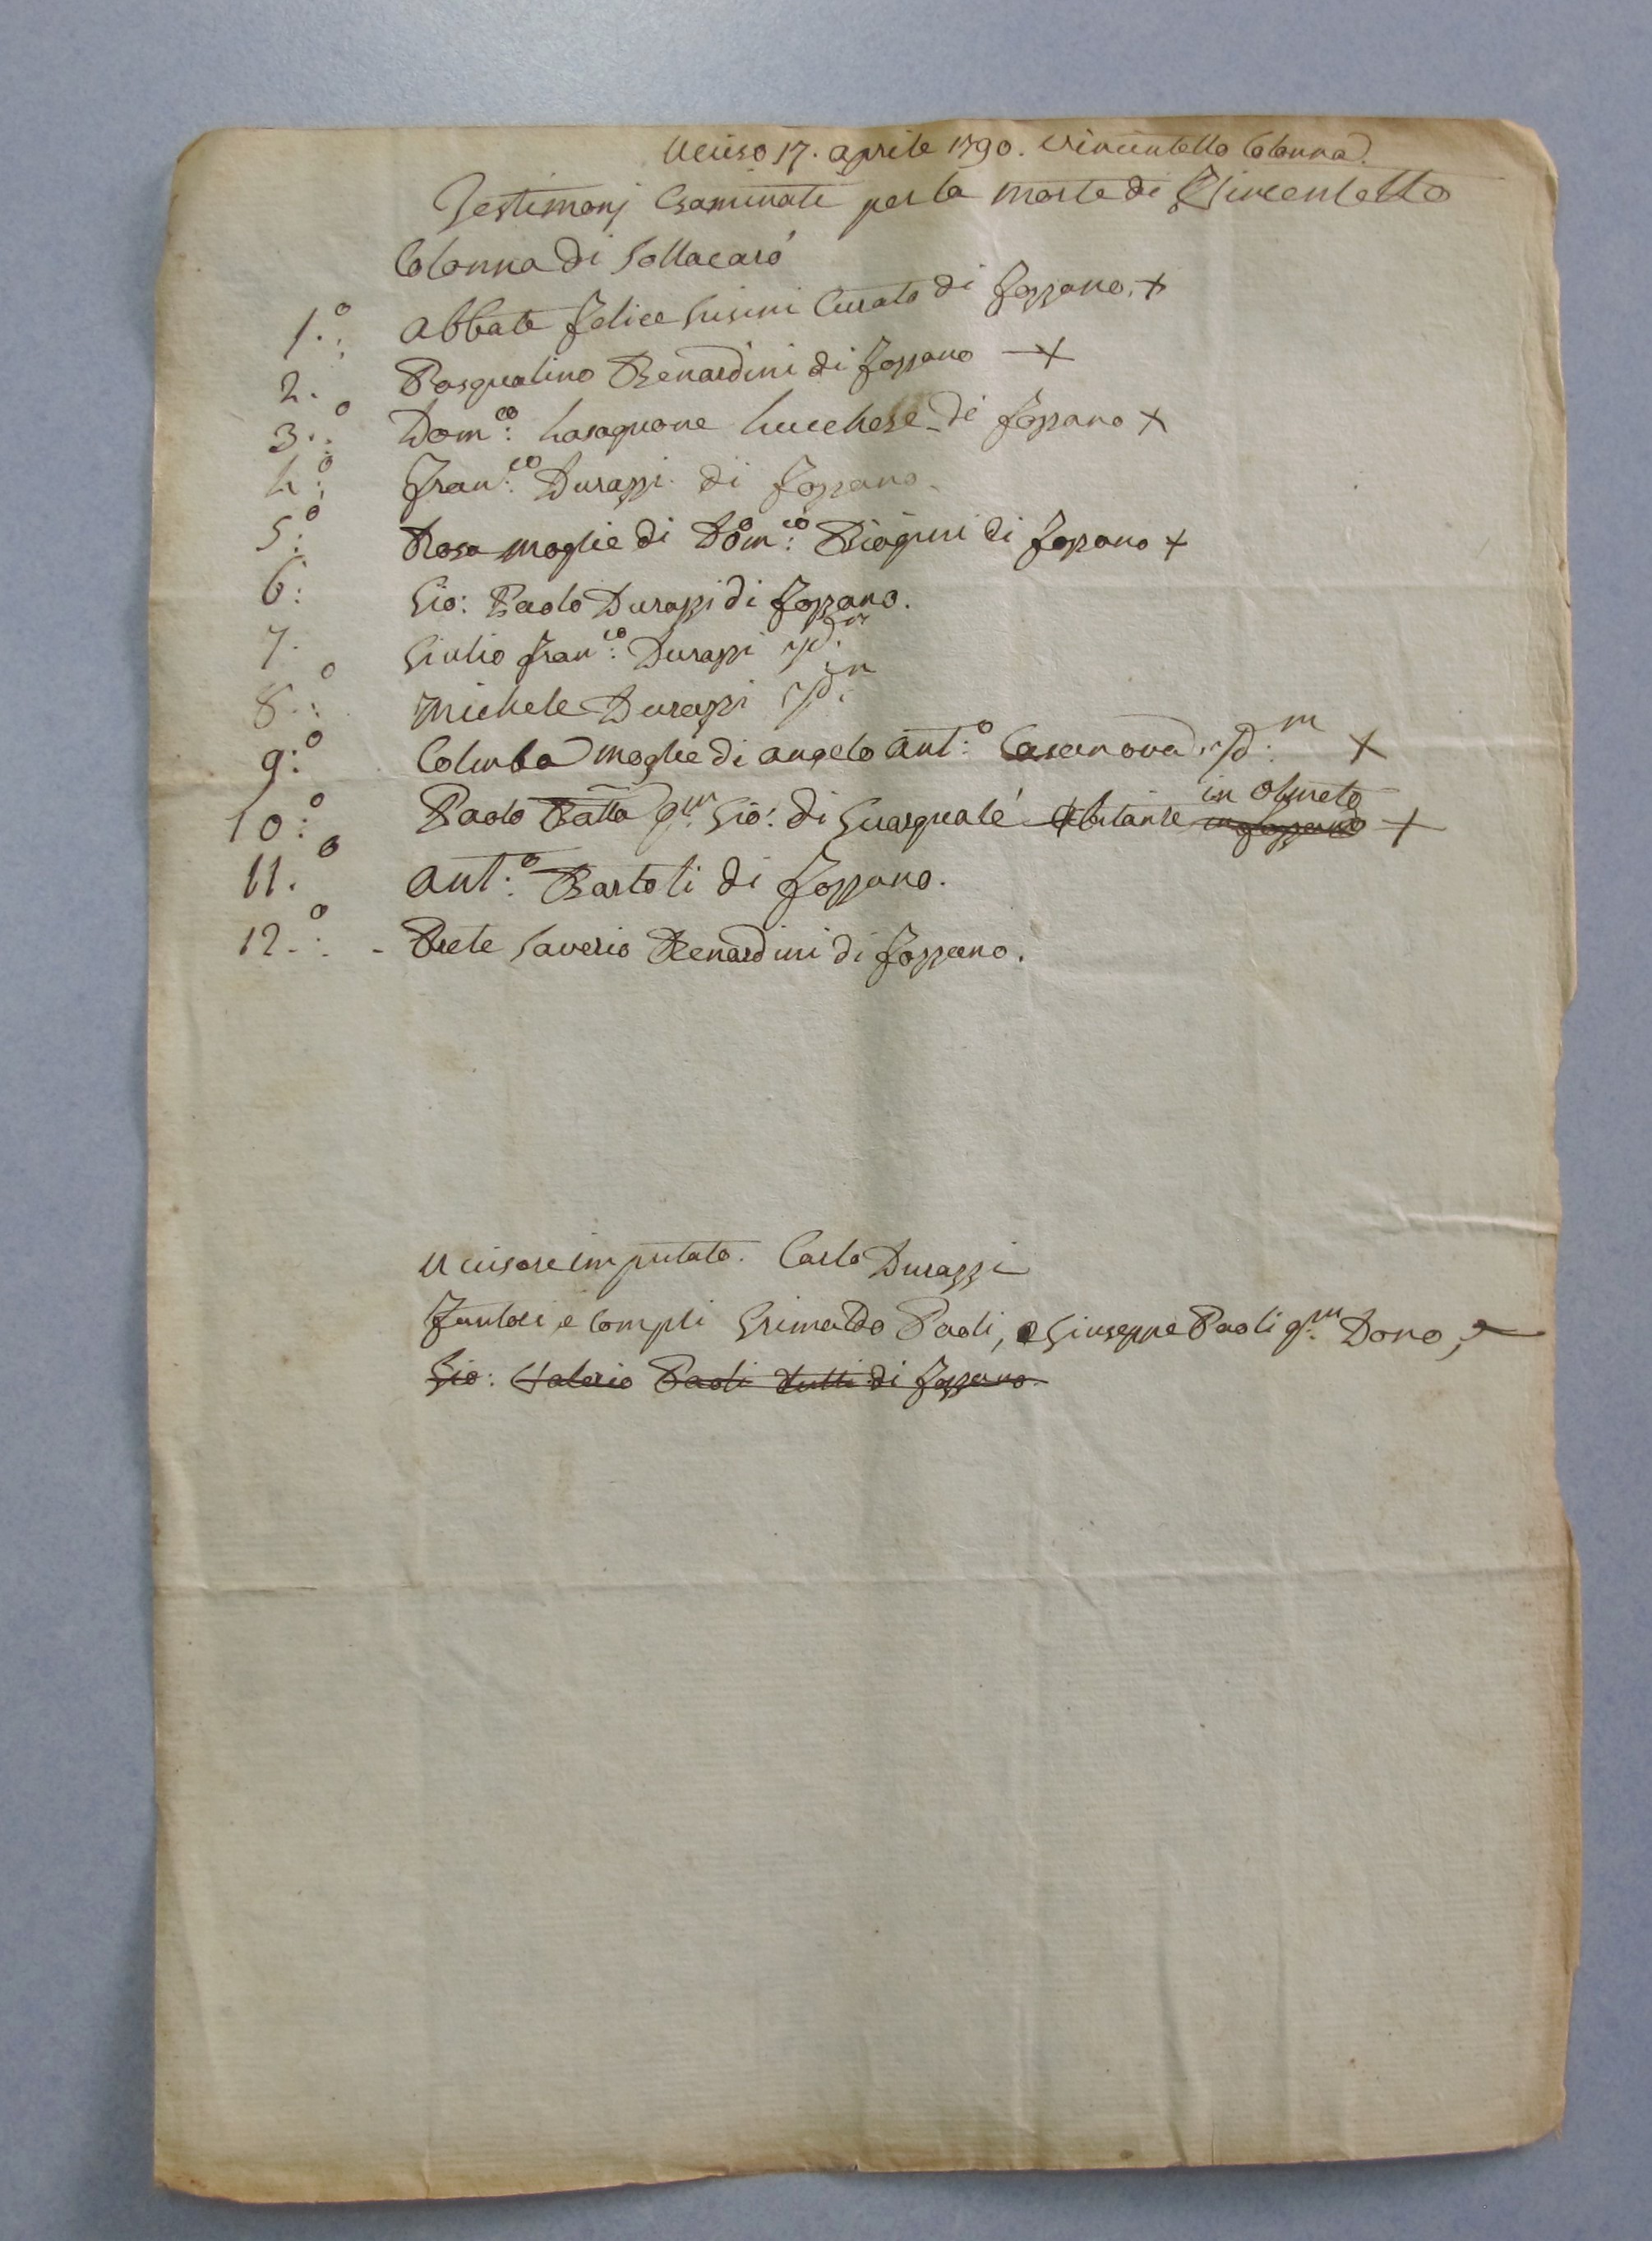 Ucciso 17. aprile 1790. Vincentello Colonna.
Testimonj Esaminati per la morte di Vincentello
Colonna di Sollacarò
1.º: Abbate Felice Susini Curato di Fozzano. +
2. Pasqualino Benardini di Fozzano — +
3.º: Dom.co: Lasagnone Lucchese di Fozzano +
4.º: Fran.co: Durazzi di Fozzano.
5.º: Rosa moglie di Dom.co: Biagini di Fozzano +
6: Gio: Paolo Durazzi di Fozzano.
7. Giulio Fran.co: Durazzi id.m
8.º: Michele Durazzi id.m
9.º: Colomba moglie di Angelo Ant.º: Casanova, id.m +
in Olmeto
10.º: Paolo Batta q.m Gio: di Guarqualè abitante in Fozzano +
11.º Ant.º: Bartoli di Fozzano.
12.º: - Prete Saverio Benardini di Fozzano.
Uccisore imputato. Carlo Durazzi
Fautori, e Compli Grimaldo Paoli, e Giuseppe Paoli q.m Dono,
Gio: Valerio Paoli tutti di Fozzano.